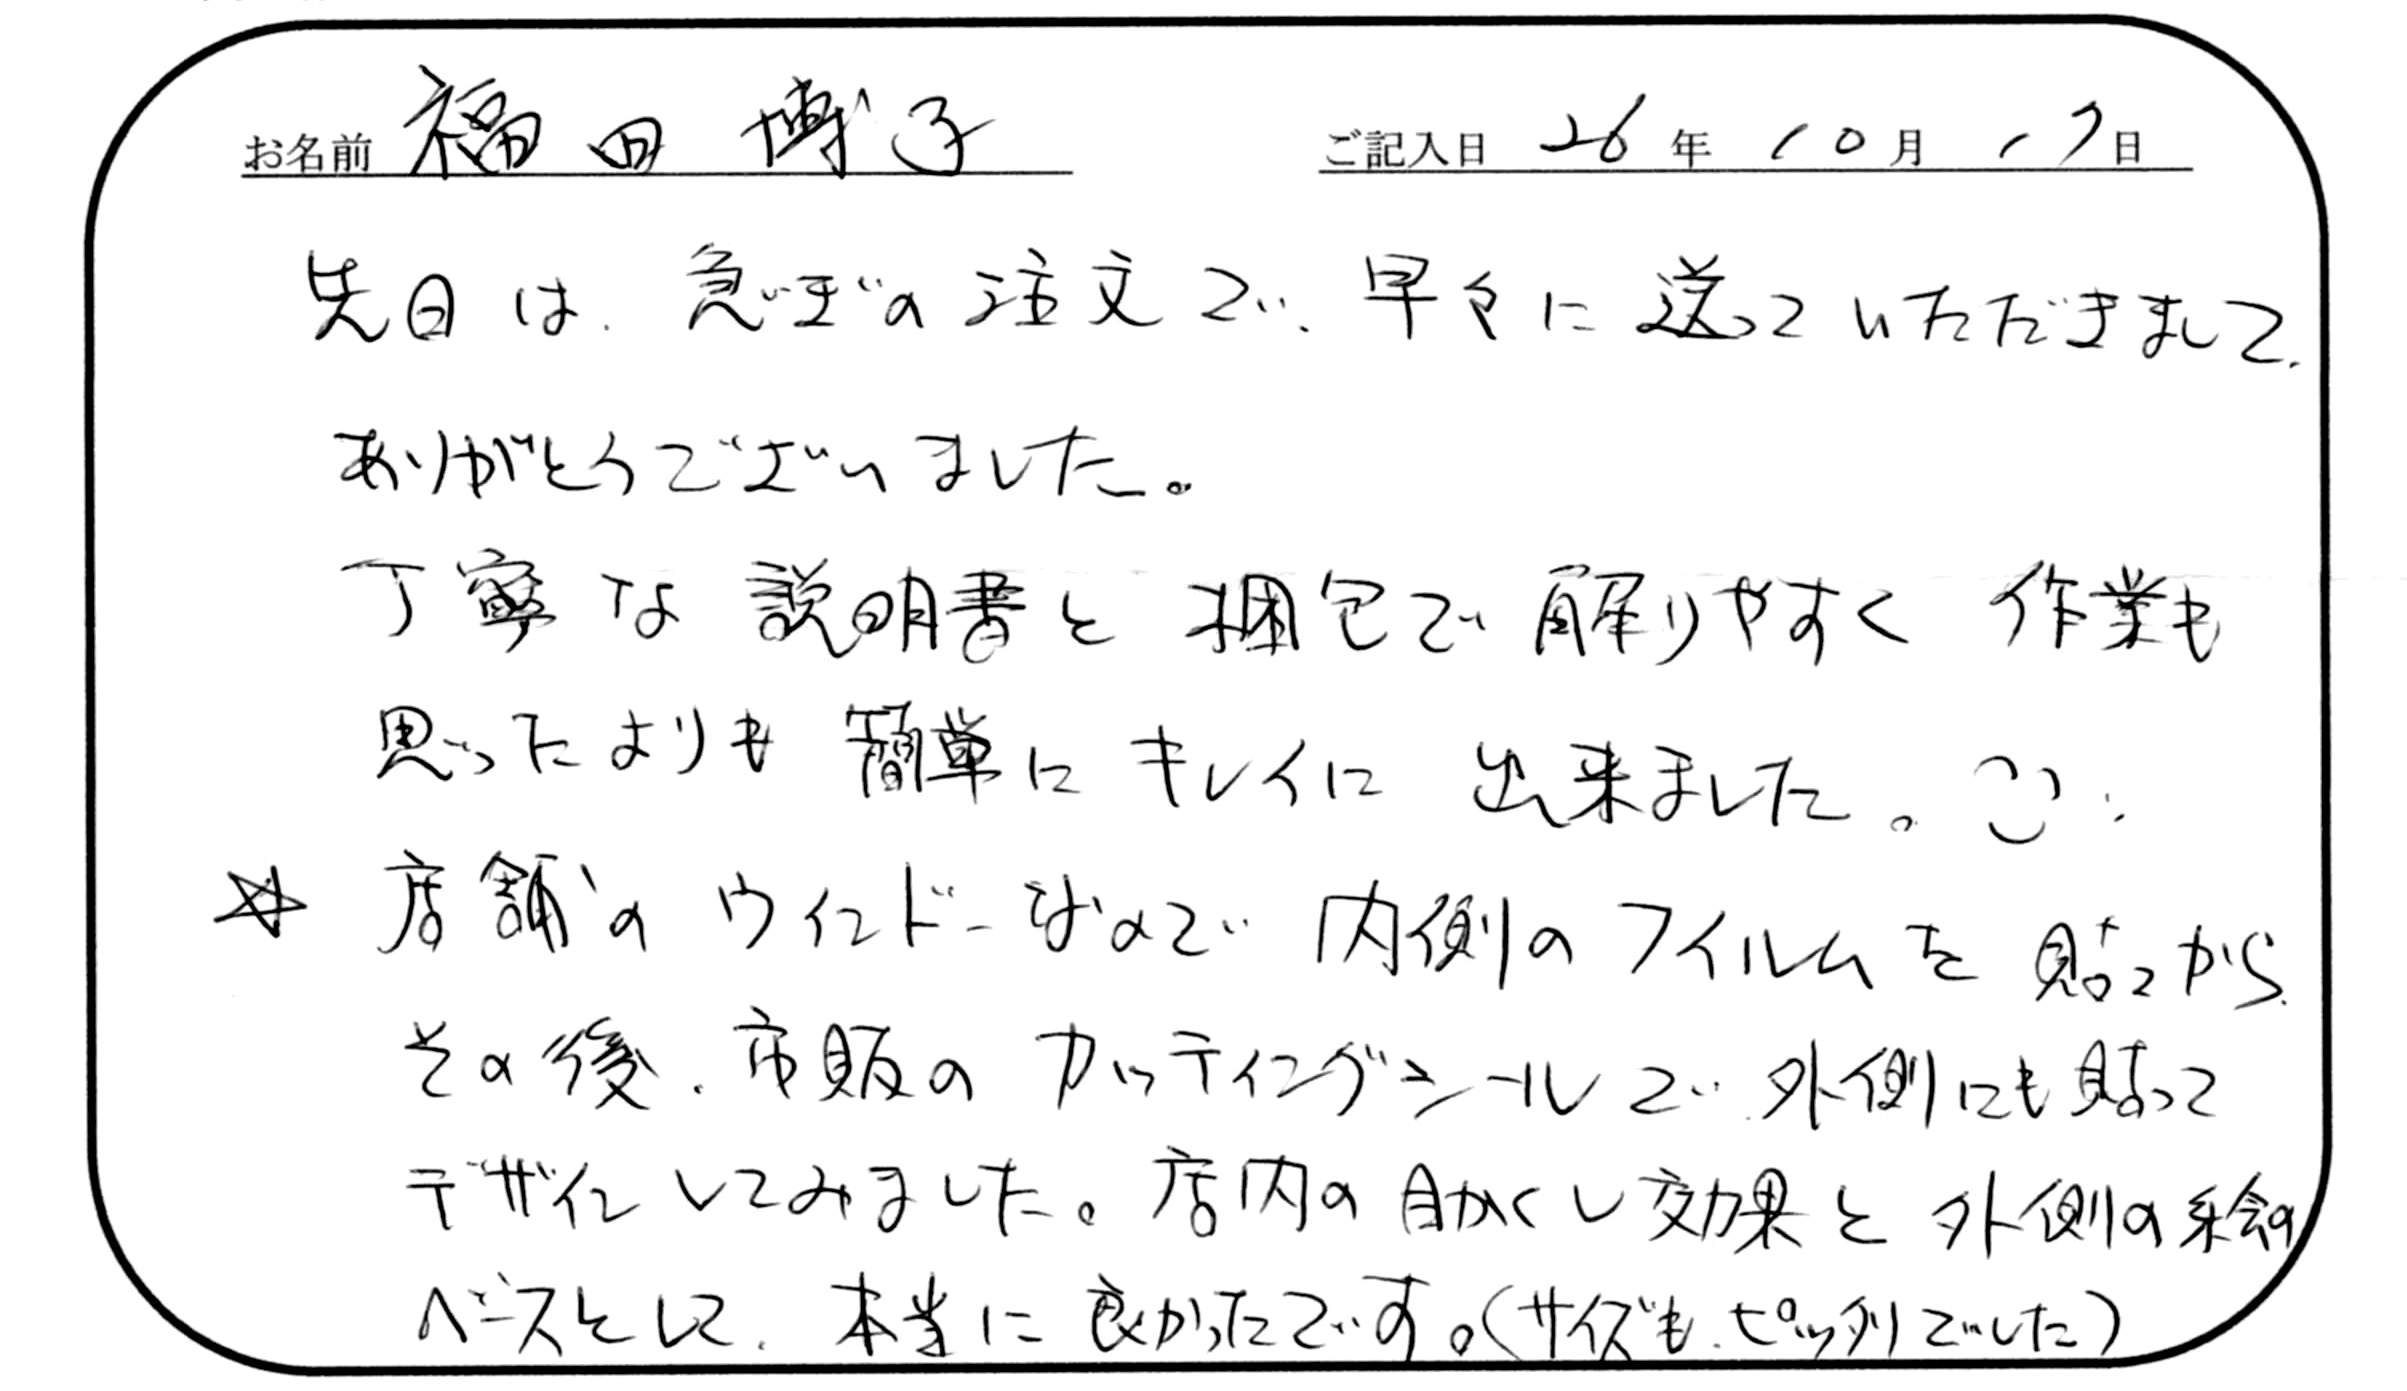 お名前 福田 博子 ご記入日 26年 10月 17日
先日は、急ぎの注文で、早々に送っていただきまして、
ありがとうございました。
丁寧な説明書と梱包で解りやすく作業も
思ったよりも簡単にキレイに出来ました。
☆店舗のウインドーなので内側のフイルムを貼ってから
その後、市販のカッティングシールで、外側にも貼って
デザインしてみました。店内の目かくし効果と外側の絵の
ベースとして、本当に良かったです。(サイズも、ピッタリでした)